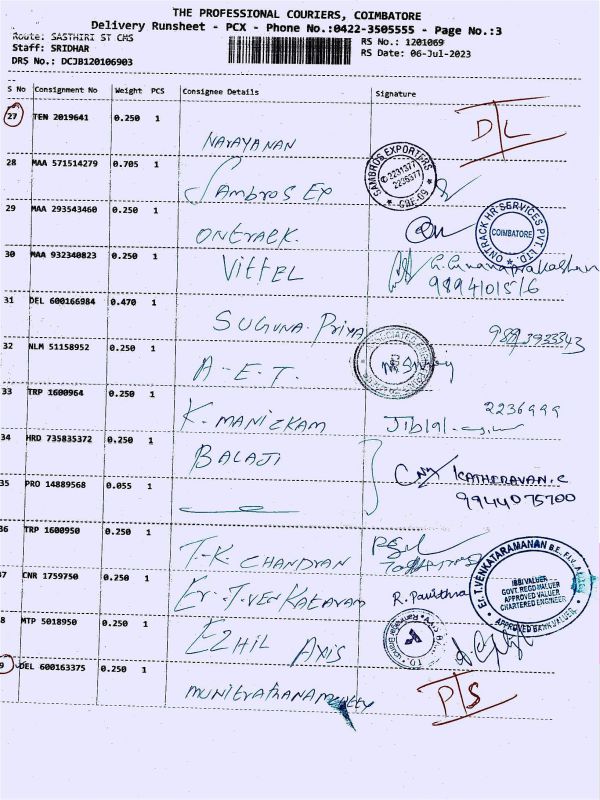 THE PROFESSIONAL COURIERS, COIMBATORE
Delivery Runsheet - PCX - Phone No.:0422-3505555 - Page No.:3
Route: SASTHIRI ST CHS
RS No.: 1201069
Staff: SRIDHAR
RS Date: 06-Jul-2023
DRS No.: DCJB120106903
S No Consignment No Weight PCS Consignee Details Signature
27 TEN 2019641 0.250 1 NARAYANAN D L
28 MAA 571514279 0.705 1 Sambros Ex
SAMBROS EXPORTERS
2231377
CBE-09
29 MAA 293543460 0.250 1 ONTRACK.
ONTRACK HR SERVICES PVT. LTD.
COIMBATORE
30 MAA 932340823 0.250 1 Vittel G. Gnanaprakasham
9894101516
31 DEL 600166984 0.470 1 SUGUNA Priya
32 NLM 51158952 0.250 1 A-E-T.
33 TRP 1600964 0.250 1 K. MANICKAM
2236999
34 HRD 735835372 0.250 1 BALAJI KATHIRAVAN.C
35 PRO 14889568 0.055 1 9944075700
36 TRP 1600950 0.250 1 T.K. CHANDRAN
37 CNR 1759750 0.250 1 Er. T. VENKATARAM R. Pavithra
Er. T.VENKATARAMAN B.E., F.I.V.
IBBI VALUER
GOVT. REGD VALUER
APPROVED VALUER
CHARTERED ENGINEER
APPROVED BANK VALUER
8 MTP 5018950 0.250 1 EZHIL AXIS
9 DEL 600163375 0.250 1 P S